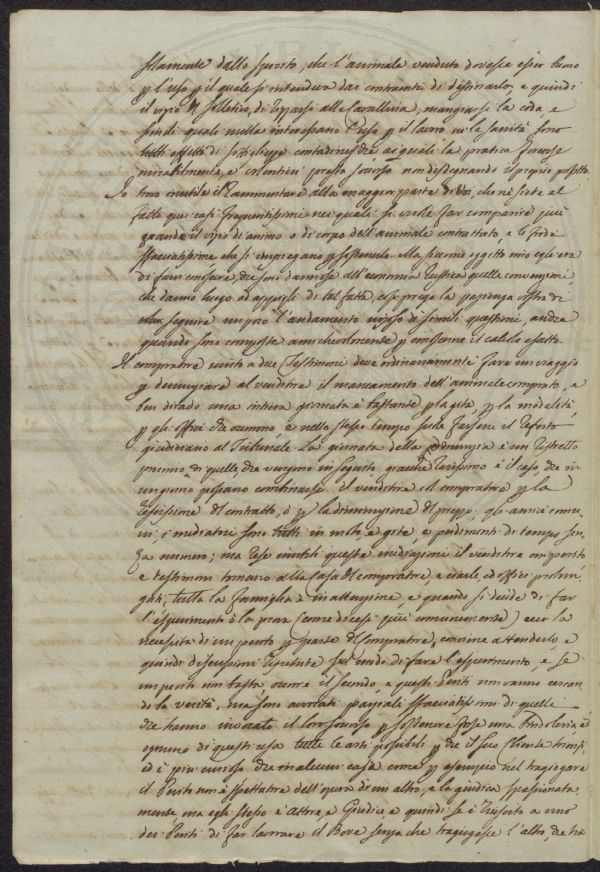 solamente dallo spirito, che l'animale venduto dovesse esser buono
p l'uso p il quale si intendeva dai contraenti di destinarlo, e quindi
il vizio di solletico, di alla Cavallina, mangiarsi la coda, e
simili quali nulla interessano l'uso p il lavoro ne la sanità sono
tutti effetti di contadinesche ai quali la pratica Forense
mirabilmente, e i presta soccorso non disdegnando il proprio profitto.
Io trovo inutile il rammentare alla maggior parte di Voi, che ne siete al
fatto quei casi frequentissimi nei quali si vuole far comparire più
grande il vizio di animo o di corpo dell'animale contrattato, e le frodi
sfacciatissime che si impiegano p sostenerlo. Ma siccome oggetto mio egli era
di farvi conoscere, che sono dannose all'economia rustica quelle convenzioni,
che danno luogo ad appigli di tal fatta, così prego la pazienza vostra di
seguire un poco l'andamento di simili questioni, anche
quando sono composte amichevolmente p conoscerne il calcolo esatto.
Il compratore unito a due Testimoni deve ordinariamente fare un viaggio
p denunziare al venditore il mancamento dell'animale comprato, e
ben di rado una intiera giornata è bastante p la gita, p la modalità,
p gli offici che occorrono e nello stesso tempo suole farsene il referto
giudiziario al Tribunale. La giornata della denunzia è un ristretto
preciso di quelle, che vengono in seguito giacchè rarissimo è il caso, che in
un giorno possano combinarsi il venditore ed il compratore p la
rescissione del contratto, o p la diminuzione del prezzo, gli amici comu-
ni, i mediatori sono tutti in moto, e gite, e perdimenti di tempo sen-
za numero; ma rese inutili queste mediazioni il venditore con perito
e testimoni tornano alla Casa del compratore, e ciarle, ed offici prolun-
gati; tutta la famiglia è in attenzione, e quando si decide di far
l'esperimento o la prova (come dicesi più comunemente) ecco la
necessità di un perito p parte del Compratore, conviene attenderlo, e
quindi discussioni ripetute sul modo di fare l'esperimento, e se
un perito non basta occorre il secondo, e questi Periti non vanno cercan-
do la verità, ma sono avvocati parziali sfacciatissimi di quelle
che hanno invocato il loro soccorso p sostenere forse una bindoleria ed
ognuno di questi usa tutte le arti possibili p che il suo Cliente trionfi,
ed è più curioso che in alcuni casi come p esempio nel tragiogare
il Perito non è spettatore dell'opera di un altro, e la giudica spassionata-
mente, ma egli stesso è Attore, e Giudice, e quindi se è riuscito a uno
dei Periti di far lavorare il Bove senza che tragiogasse l'altro, che ha